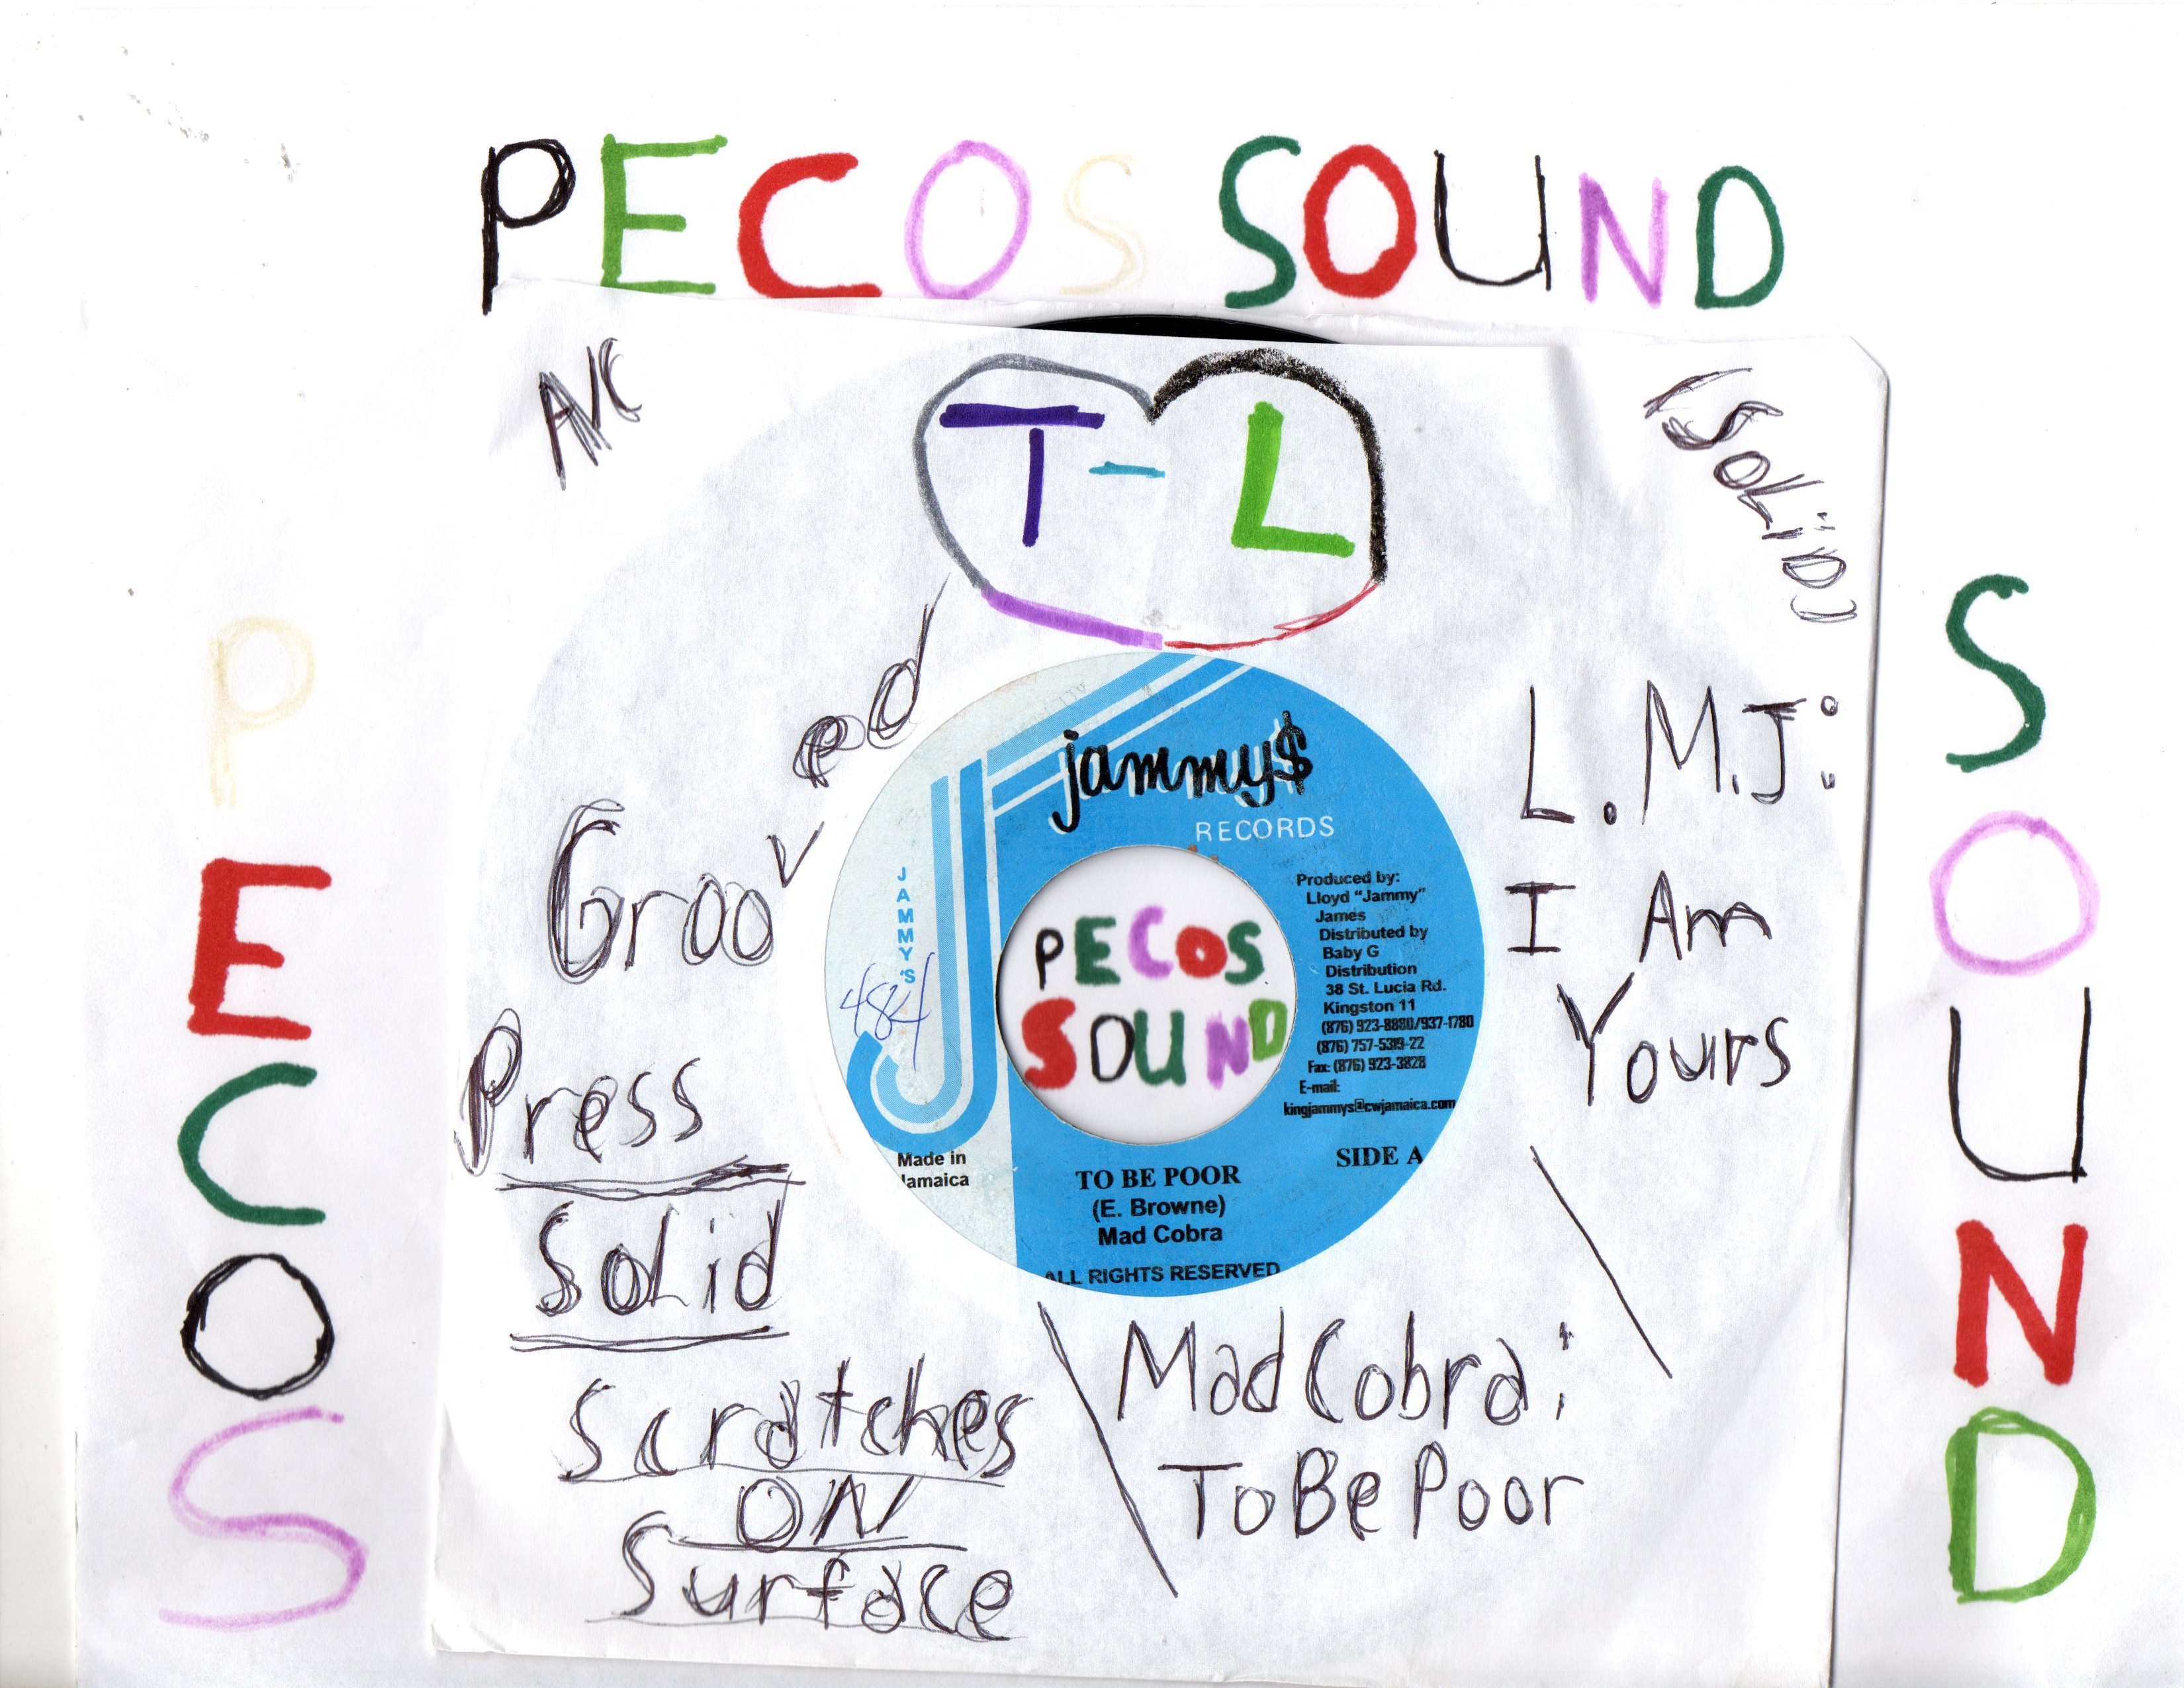 PECOS SOUND
T-L
(SOLiD)
Grooved
Press
SoLid
Scratches
ON
Surface
L.M.J:
I Am
Yours
Mad Cobra:
To Be Poor
PECOS
SOUND
jammy$
RECORDS
JAMMY'S
484
Produced by:
Lloyd "Jammy"
James
Distributed by
Baby G
Distribution
38 St. Lucia Rd.
Kingston 11
(876) 923-8880/937-1780
(876) 757-5319-22
Fax: (876) 923-3828
E-mail:
kingjammys@cwjamaica.com
PECOS
SOUND
Made in
Jamaica
SIDE A
TO BE POOR
(E. Browne)
Mad Cobra
ALL RIGHTS RESERVED